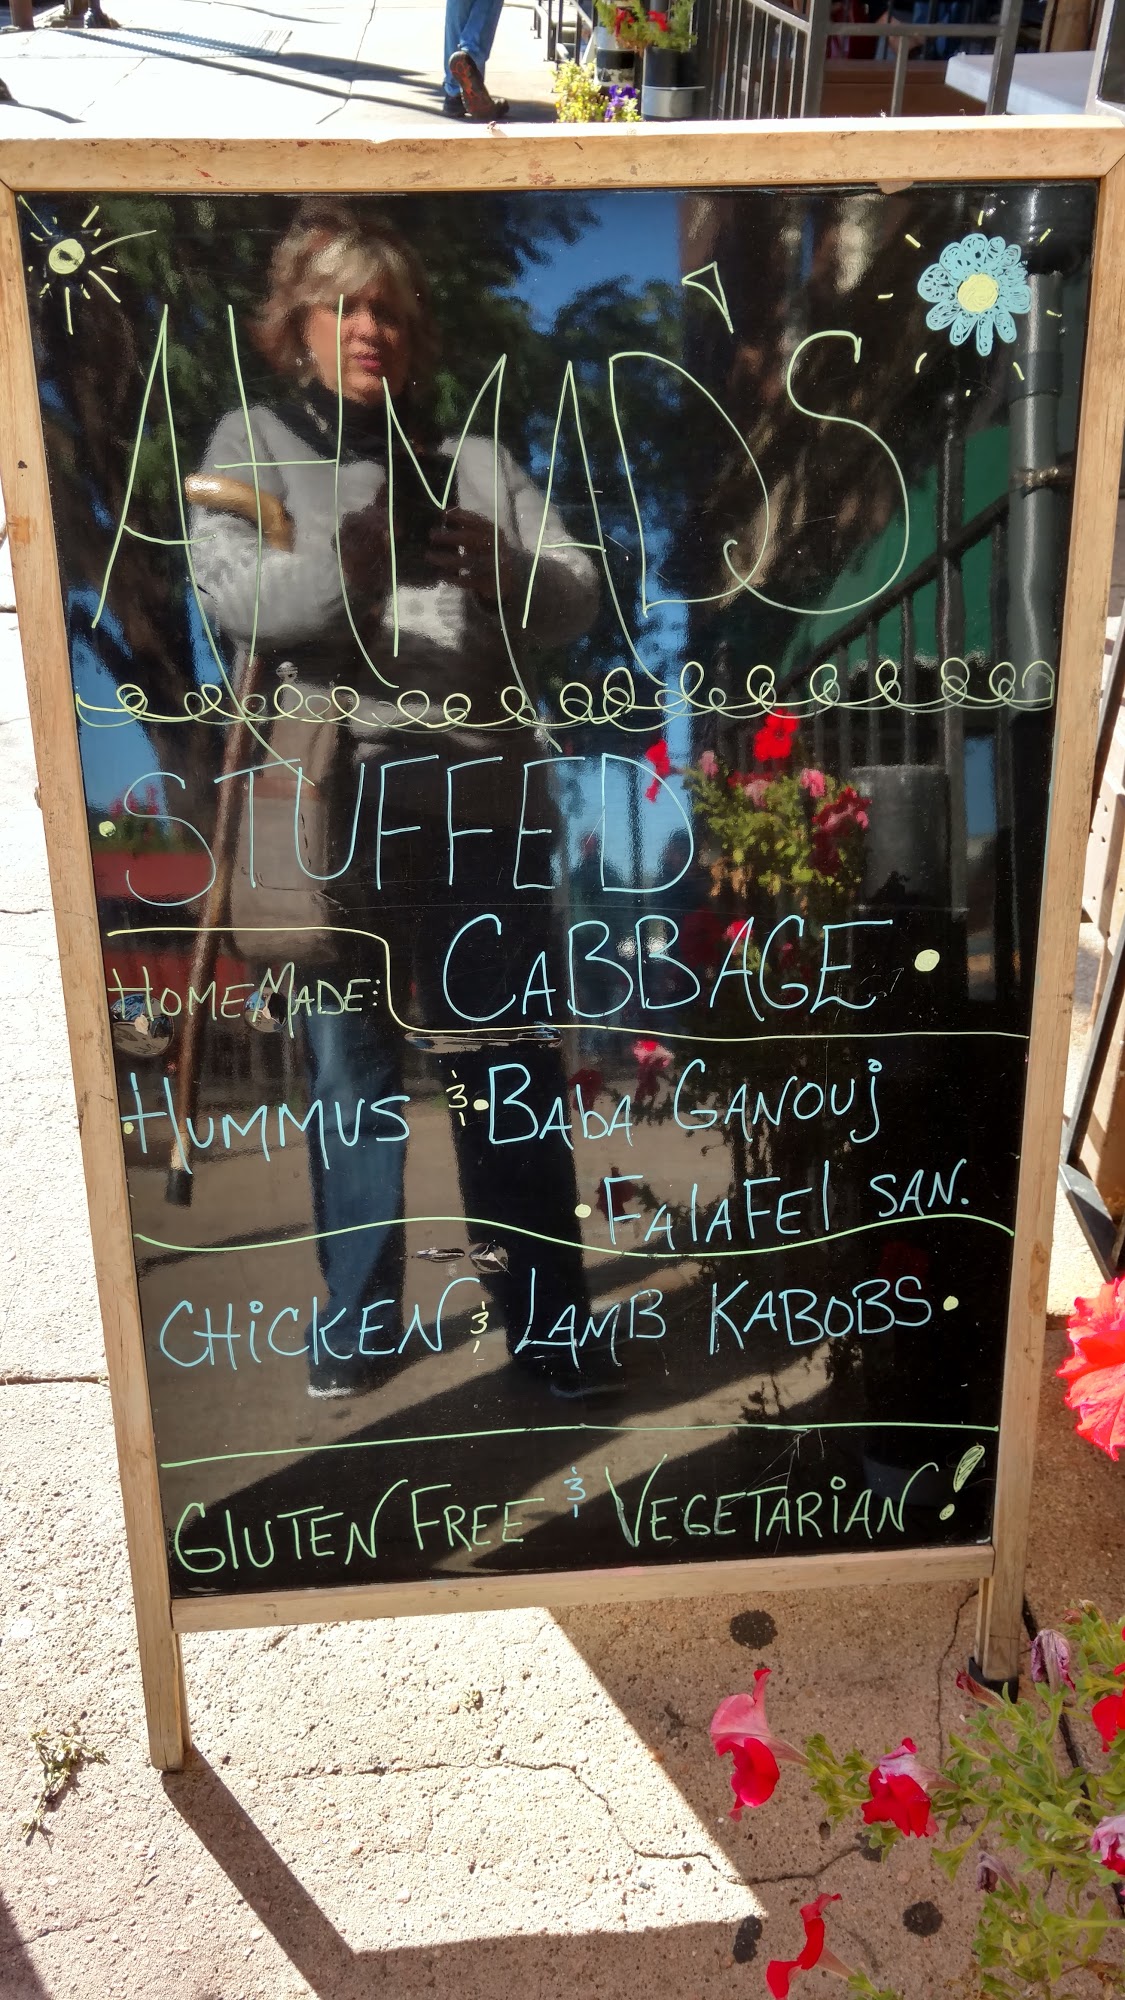 AHMAD'S
STUFFED
CABBAGE
HOMEMADE:
HUMMUS & BAbA GANOUj
FAlAFEl SAN.
CHiCKEN & LAMB KABOBS
GlUTEN FREE & VEGETARiAN!